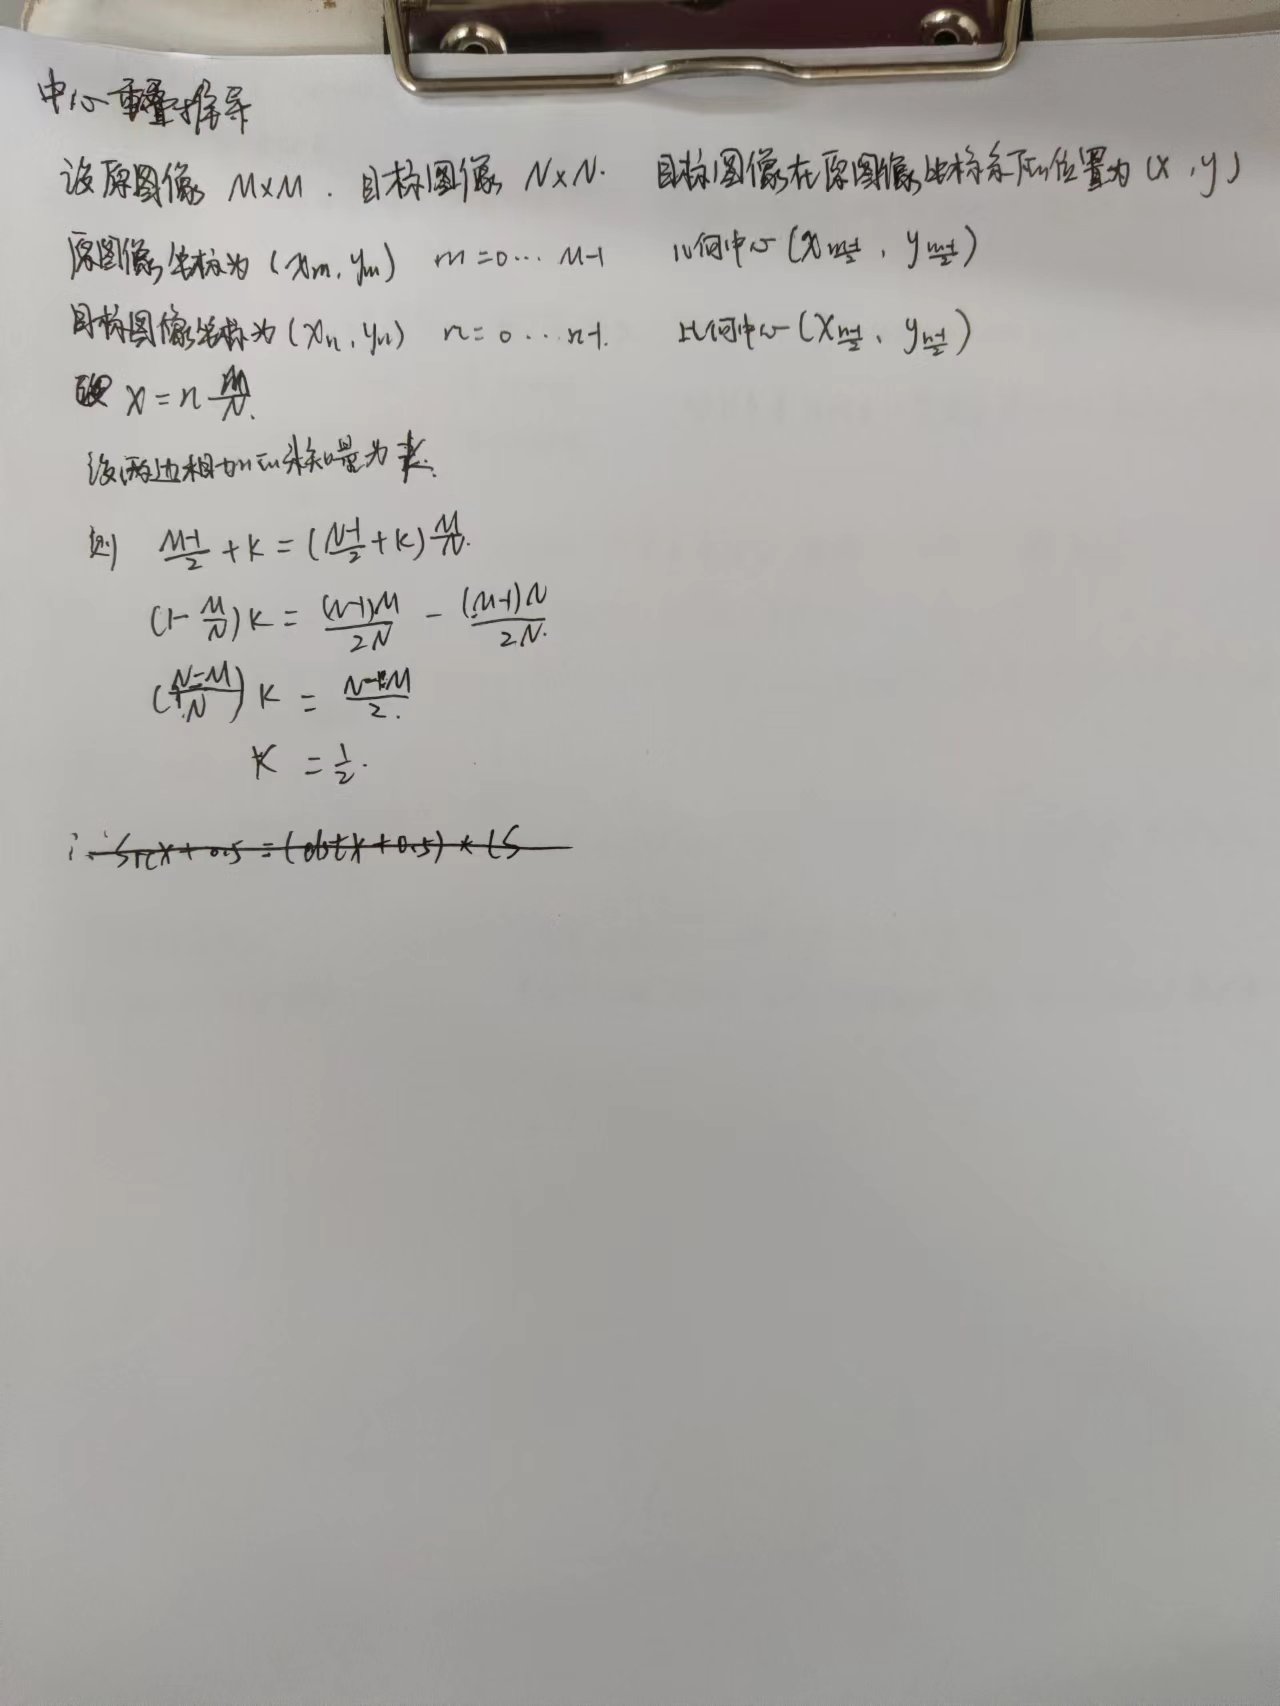 中心重叠推导
设原图像 M×M . 目标图像 N×N. 目标图像在原图像坐标系下的位置为 (x , y)
原图像坐标为 (xm, ym) m = 0 ... M-1 几何中心 (x_{\frac{m-1}{2}} , y_{\frac{m-1}{2}})
目标图像坐标为 (xn, yn) n = 0 ... n-1. 几何中心 (x_{\frac{n-1}{2}} , y_{\frac{n-1}{2}})
x = n \frac{m}{N}.
设两边相加的未知量为 k.
则 \frac{M-1}{2} + K = (\frac{N-1}{2} + K) \frac{M}{N}.
(1 - \frac{M}{N}) K = \frac{(N-1)M}{2N} - \frac{(M-1)N}{2N}.
(\frac{N-M}{N}) K = \frac{N-M}{2}.
K = \frac{1}{2}.
∴ Srcx + 0.5 = (dstx + 0.5) * (S